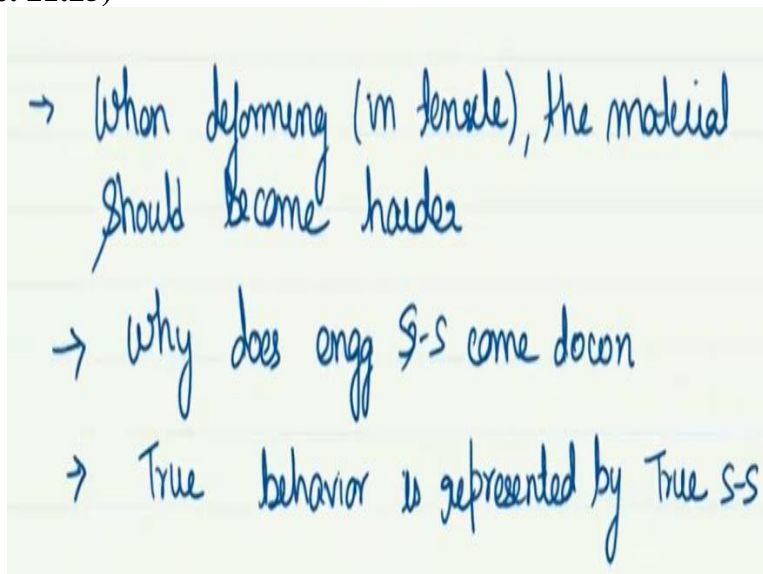 → When deforming (in tensile), the material
should become harder
→ Why does engg S-S come down
→ True behavior is represented by True S-S